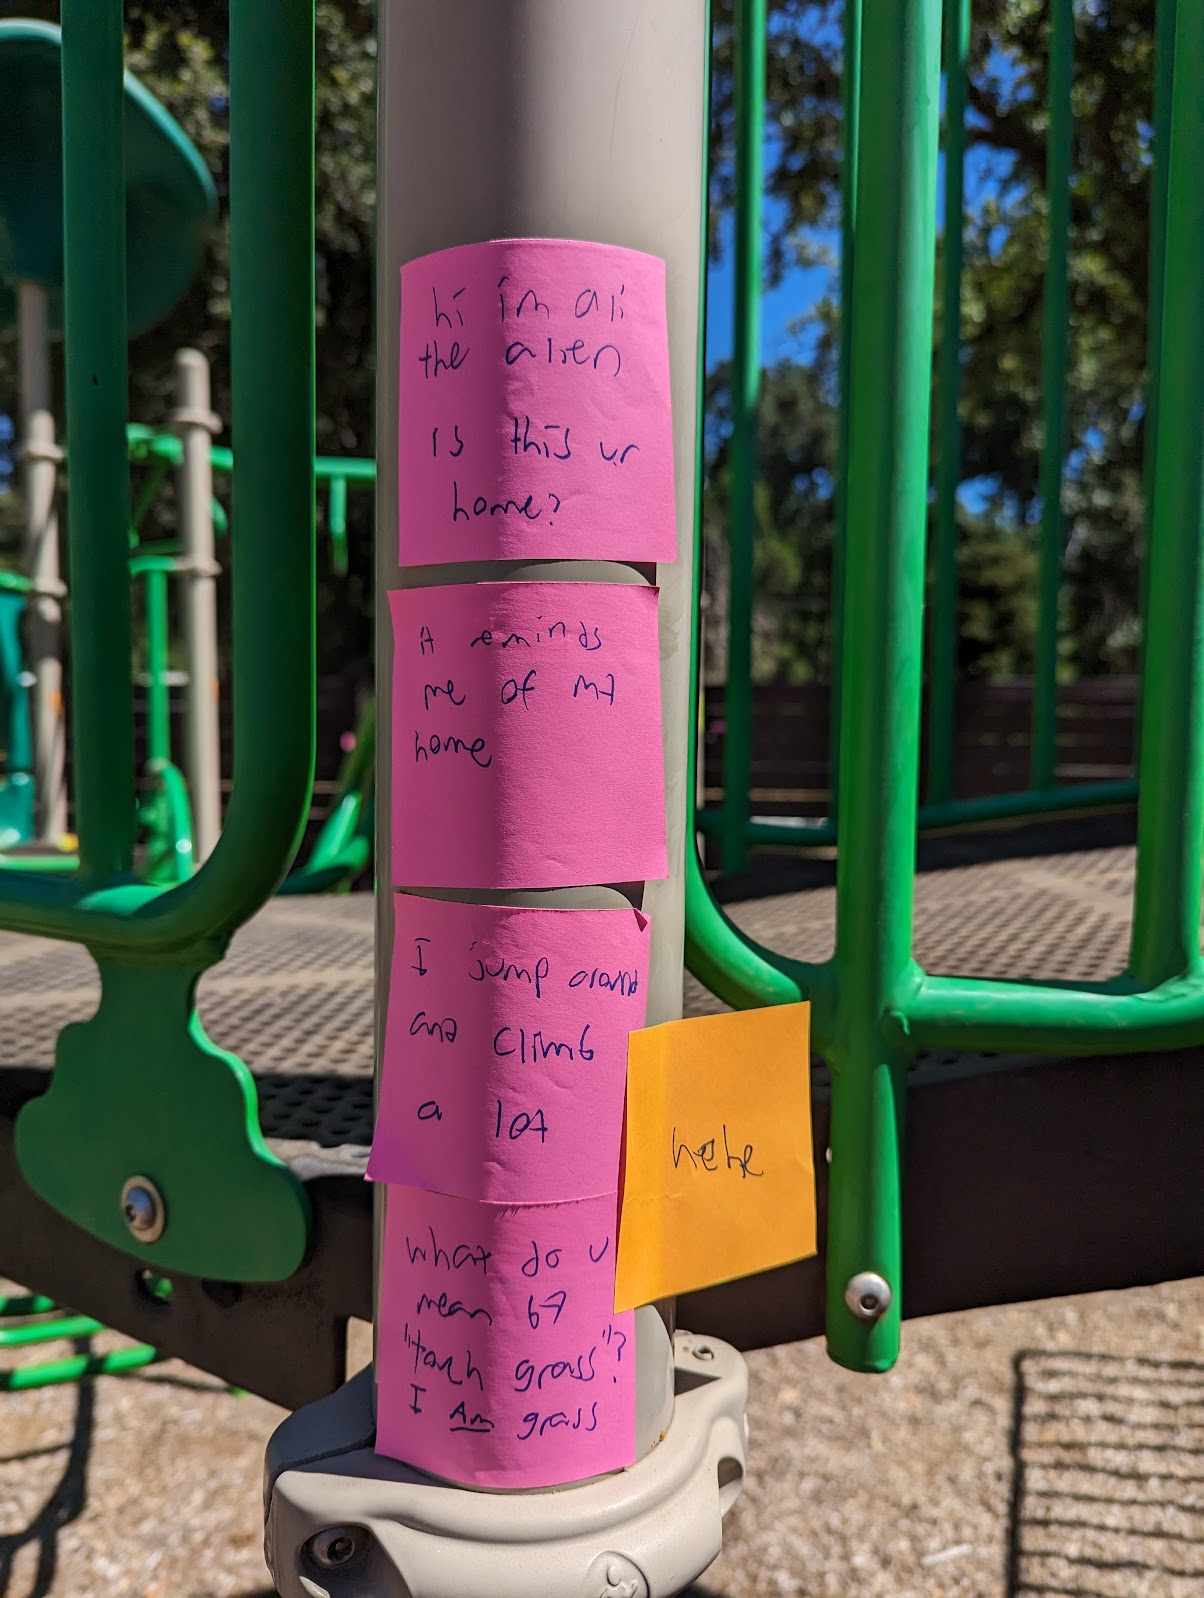 hi im ali
the alien
Is this ur
home?
It reminds
me of my
home
I jump around
and climb
a lot
hehe
what do u
mean by
"touch grass"?
I Am grass